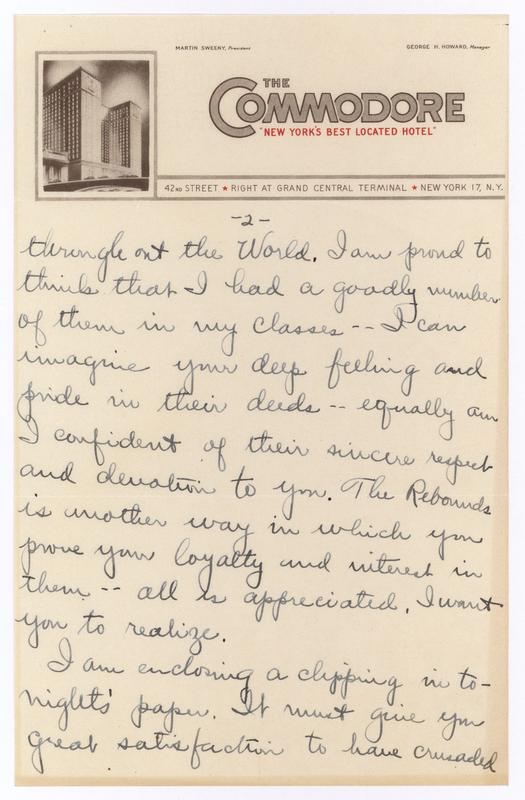 MARTIN SWEENY, President
GEORGE H. HOWARD, Manager
THE
COMMODORE
"NEW YORK'S BEST LOCATED HOTEL"
42ND STREET ★ RIGHT AT GRAND CENTRAL TERMINAL ★ NEW YORK 17, N.Y.
-2-
through out the World. I am proud to
think that I had a goodly number
of them in my classes -- I can
imagine your deep feeling and
pride in their deeds -- equally am
I confident of their sincere respect
and devotion to you. The Rebounds
is another way in which you
prove your loyalty and interest in
them -- all is appreciated, I want
you to realize.
I am enclosing a clipping in to-
night's paper. It must give you
great satisfaction to have crusaded